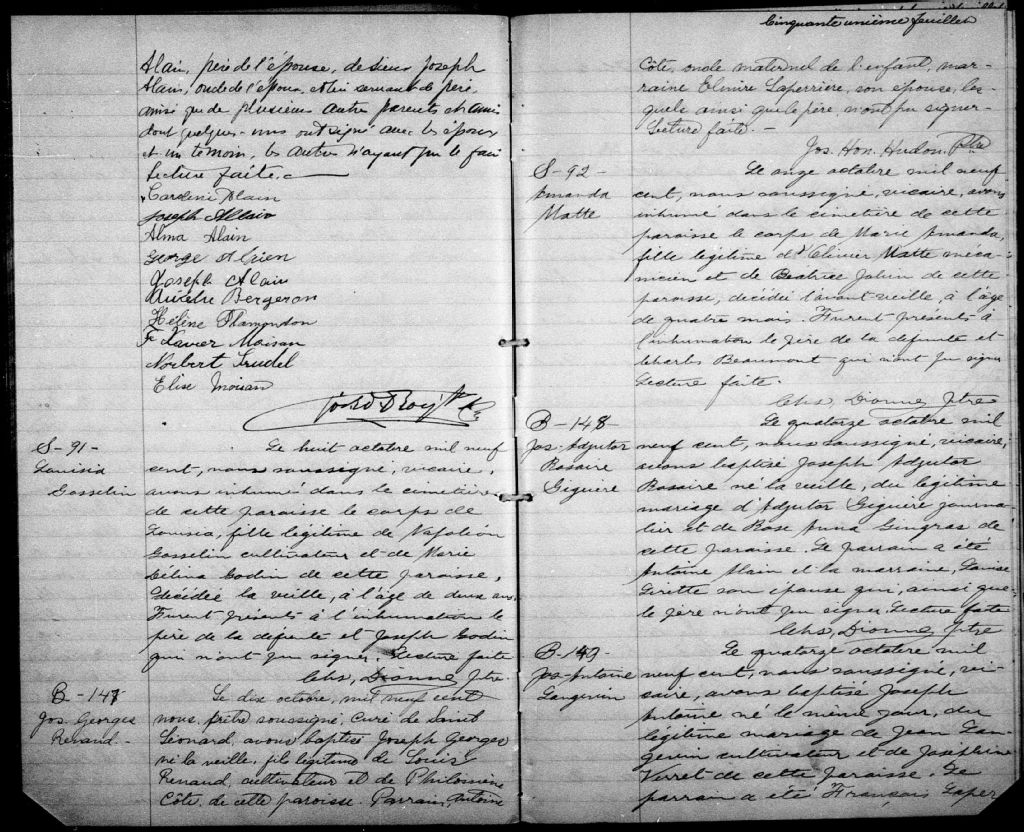 Alain, père de l'épouse, de sieur Joseph
Alain, oncle de l'époux, servant de père,
ainsi que de plusieurs autre parents et amis
dont quelques-uns ont signé avec les époux
et un témoin, les autres n'ayant pu le faire
Lecture faite.
Caroline Alain
Joseph Allain
Alma Alain
George
Joseph Alain
Aurélie Bergeron
Hélène Plamondon
F Xavier Moisan
Norbert Trudel
Elise Moisan
S-91-
Louisia
Gosselin
Le huit octobre mil neuf
cent, nous soussigné, vicaire,
avons inhumé dans le cimetière
de cette paroisse le corps de
Louisia, fille légitime de Napoléon
Gosselin cultivateur et de Marie
Célina Godin de cette paroisse,
décédée la veille, à l'âge de deux ans.
Furent présents à l'inhumation le
père de la défunte et Joseph Godin
qui n'ont pu signer. Lecture faite
Chs, Dionne Ptre
B-147
Jos. Georges
Renaud.
Le dix octobre, mil neuf cent
nous, prêtre soussigné, curé de Saint
Léonard, avons baptisé Joseph Georges
né la veille, fils légitime de Louis
Renaud, cultivateur et de Philomène
Côté, de cette paroisse. Parrain, Antoine
Cinquante unième feuillet
Côté, oncle maternel de l'enfant, mar-
raine Elmire Laperrière, son épouse, les-
quels ainsi que le père, n'ont pu signer.
Lecture faite.-
Jos. Hon. Hudon. Ptre
S-92-
Amanda
Matte
Le onze octobre mil neuf
cent, nous soussigné, vicaire, avons
inhumé dans le cimetière de cette
paroisse le corps de Marie Amanda,
fille légitime d'Olivier Matte méca-
nicien et de Beatrice Jobin de cette
paroisse, décédée l'avant veille, à l'âge
de quatre mois. Furent présents à
l'inhumation le père de la défunte et
Charles Beaumont qui n'ont pu signer
Lecture faite.
Chs, Dionne Ptre
B-148-
Jos-Adjutor
Rosaire
Giguère
Le quatorze octobre mil
neuf cent, nous soussigné, vicaire,
avons baptisé Joseph Adjutor
Rosaire né la veille, du légitime
mariage d'Adjutor Giguère journa-
lier et de Rose Anna Gingras de
cette paroisse. Le parrain a été
Antoine Alain et la marraine, Louise
son épouse qui, ainsi que
le père n'ont pu signer. Lecture faite
Chs, Dionne Ptre
B-149-
Jos-Antoine
Langevin
Le quatorze octobre mil
neuf cent, nous soussigné, vi-
caire, avons baptisé Joseph
Antoine né le même jour, du
légitime mariage de Jean Lan-
gevin cultivateur et de Joséphine
Verret de cette paroisse. Le
parrain a été François Laper